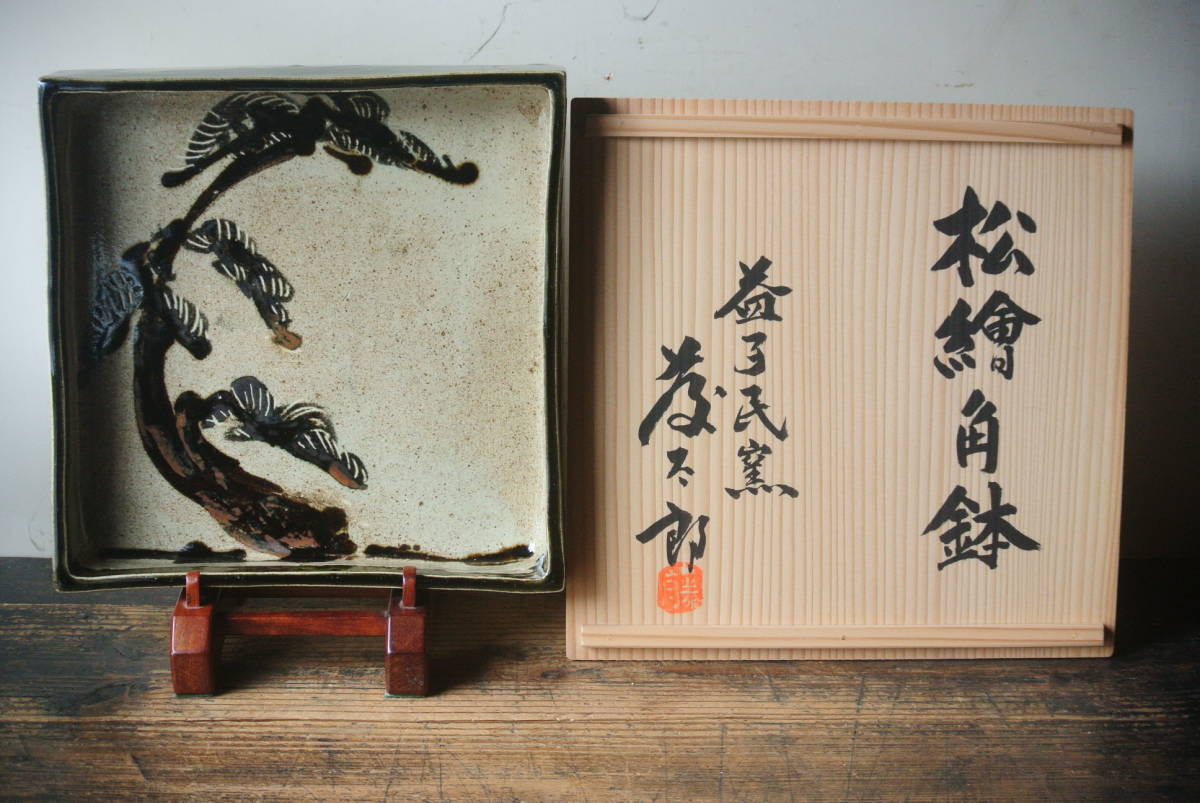 松繪角鉢
益子民窯
藤太郎
藤